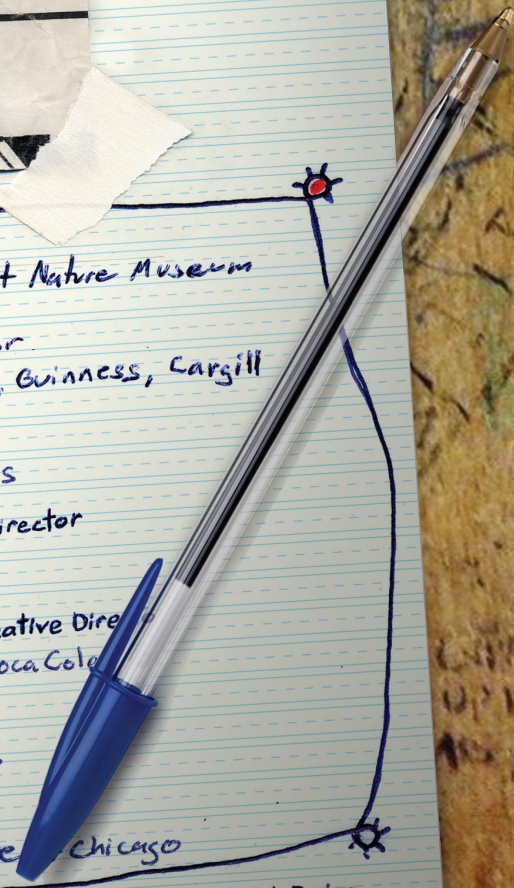 t Nature Museum
or
, Guinness, Cargill
s
irector
ative Dire
oca Cola
e Chicago